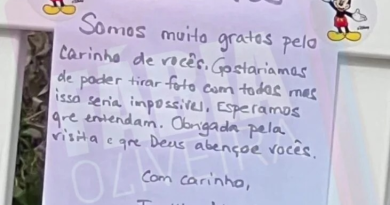 Somos muito gratos pelo
carinho de vocês. Gostaríamos
de poder tirar foto com todos mas
isso seria impossível. Esperamos
que entendam. Obrigada pela
visita e que Deus abençoe vocês.
Com carinho,